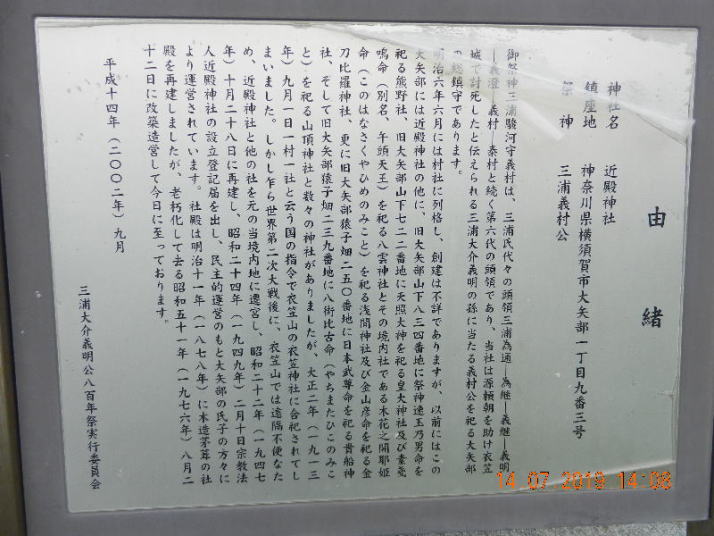 由緒
神社名　近殿神社
鎮座地　神奈川県横須賀市大矢部一丁目九番三号
祭神　三浦義村公
御祭神三浦駿河守義村は、三浦氏代々の頭領三浦為通―為継―義継―義明
―義澄―義村―泰村と続く第六代の頭領であり、当社は源頼朝を助け衣笠
城で討死したと伝えられる三浦大介義明の孫に当たる義村公を祀る大矢部
の総鎮守であります。
明治六年六月には村社に列格し、創建は不詳でありますが、以前にはこの
大矢部には近殿神社の他に、旧大矢部山下八三四番地に祭神速玉乃男命を
祀る熊野社、旧大矢部山下七二二番地に天照大神を祀る皇大神社及び素戔
嗚命（別名、午頭天王）を祀る八雲神社とその境内社である木花之開耶姫
命（このはなさくやひめのみこと）を祀る浅間神社及び金山彦命を祀る金
刀比羅神社、更に旧大矢部猿子畑二五〇番地に日本武尊命を祀る貴船神
社、そして旧大矢部猿子畑二三九番地に八衙比古命（やちまたひこのみこ
と）を祀る山頂神社と数々の神社がありましたが、大正二年（一九一三
年）九月一日一村一社と云う国の指令で衣笠山の衣笠神社に合祀されてし
まいました。しかし乍ら世界第二次大戦後に、衣笠山では遠隔不便なた
め、近殿神社と他の社を元の当境内地に遷宮し、昭和二十二年（一九四七
年）十月二十八日に再建し、昭和二十四年（一九四九年）二月十日宗教法
人近殿神社の設立登記届を出し、民主的運営のもと大矢部の氏子の方々に
より運営されています。社殿は明治十一年（一八七八年）に木造茅葺の社
殿を再建しましたが、老朽化して去る昭和五十一年（一九七六年）八月二
十二日に改築造営して今日に至っております。
平成十四年（二〇〇二年）九月
三浦大介義明公八百年祭実行委員会
14 07 2019 14:08